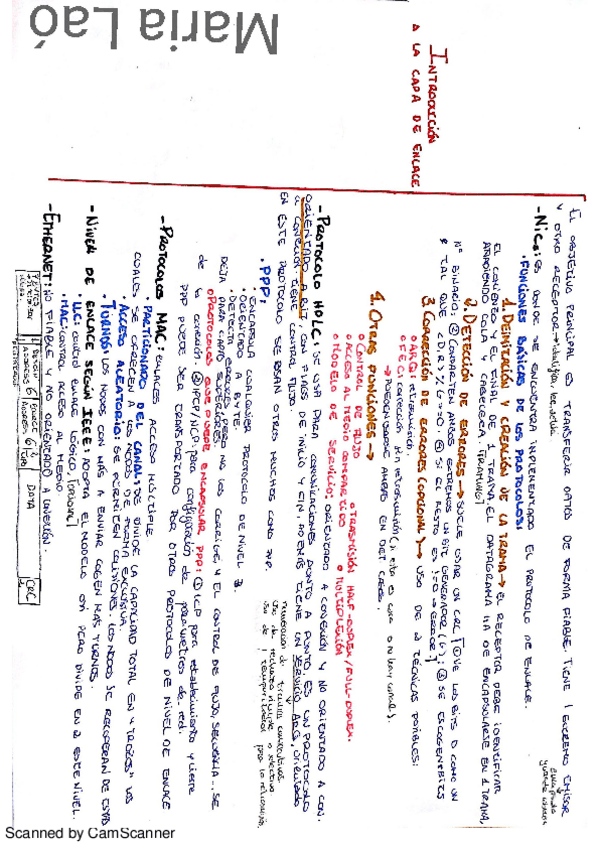 Maria Laó
INTRODUCCIÓN
A LA CAPA DE ENLACE
EL OBJETIVO PRINCIPAL ES TRANSFERIR DATOS DE FORMA FIABLE. TIENE 1 EXTREMO EMISOR
Y OTRO RECEPTOR
- NIC: ES DONDE SE ENCUENTRA IMPLEMENTADO EL PROTOCOLO DE ENLACE.
· FUNCIONES BÁSICAS DE LOS PROTOCOLOS:
1. DELIMITACIÓN Y CREACIÓN DE LA TRAMA → EL RECEPTOR DEBE IDENTIFICAR
EL COMIENZO Y EL FINAL DE 1 TRAMA. EL DATAGRAMA HA DE ENCAPSULARSE EN 1 TRAMA,
AÑADIENDO COLA Y CABECERA [FRAMING]
2. DETECCIÓN DE ERRORES → SUELE USAR UN CRC [① VE LOS BITS D COMO UN
Nº BINARIO; ② COMPARTEN AMBOS EXTREMOS UN BIT GENERADOR (G); ③ SE ESCOGEN BITS
R TAL QUE <D,R>%G=0; ④ SI EL RESTO ES ≠0 → ERROR]
3. CORRECCIÓN DE ERRORES (OPCIONAL) → USO DE 2 TÉCNICAS POSIBLES:
○ ARQ: retransmisión.
○ FEC: corrección sin retransmisión
→ PUEDEN USARSE AMBOS EN DET CASOS.
4. OTRAS FUNCIONES →
○ TRASMISIÓN HALF-DUPLEX/FULL-DUPLEX.
○ CONTROL DE FLUJO
○ ACCESO AL MEDIO COMPARTIDO
○ MULTIPLEXIÓN
○ MODELO DE SERVICIO: ORIENTADO A CONEXIÓN Y NO ORIENTADO A CON.
- PROTOCOLO HDLC: SE USA PARA COMUNICACIONES PUNTO A PUNTO. ES UN PROTOCOLO
ORIENTADO A BIT, CON FLAGS DE INICIO Y FIN, ADEMÁS TIENE UN SERVICIO ARQ ORIENTADO
A CONEXIÓN. TIENE CONTROL FLUJO.
EN ESTE PROTOCOLO SE BASAN OTROS MUCHOS COMO PPP.
· PPP:
· ENCAPSULA CUALQUIER PROTOCOLO DE NIVEL 3.
· ORIENTADO A BYTE.
· DETECTA ERRORES PERO NO LOS CORRIGE, Y EL CONTROL DE FLUJO, SECUENCIA... SE
DEJA PARA CAPAS SUPERIORES
○ PROTOCOLOS QUE PUEDE ENCAPSULAR PPP: ① LCP para establecimiento y cierre
de la conexión; ② IPCP/NCP para configuración de parámetros de red.
PPP PUEDE SER TRANSPORTADO POR OTROS PROTOCOLOS DE NIVEL DE ENLACE
- PROTOCOLOS MAC: ENLACES ACCESO MÚLTIPLE
· PARTICIONADO DE CANAL: SE DIVIDE LA CAPACIDAD TOTAL EN "TROZOS" LOS
CUALES SE OFRECEN A LOS NODOS DE FORMA EXCLUSIVA.
· ACCESO ALEATORIO: SE PERMITEN COLISIONES, LOS NODOS SE RECUPERAN DE ESTAS
· TURNOS: LOS NODOS CON MÁS A ENVIAR COGEN MÁS TURNOS.
- NIVEL DE ENLACE SEGÚN IEEE: ADOPTA EL MODELO OSI PERO DIVIDE EN 2 ESTE NIVEL.
· LLC: CONTROL ENLACE LÓGICO. [OPCIONAL]
· MAC: CONTROL ACCESO AL MEDIO.
- ETHERNET: NO FIABLE Y NO ORIENTADO A CONEXIÓN.
DATA
CRC
Scanned by CamScanner